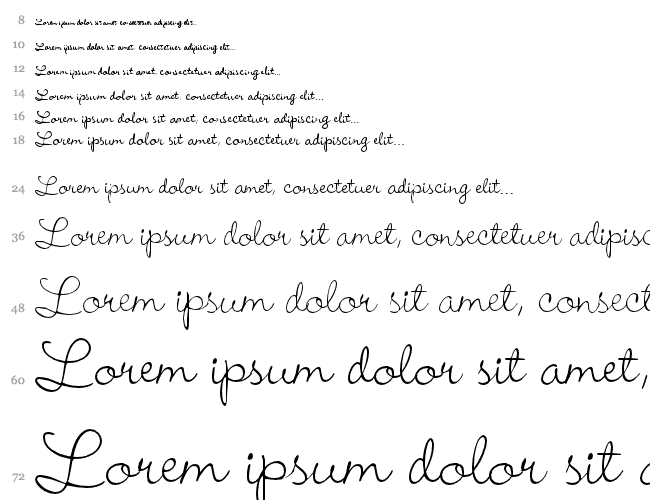 8 Lorem ipsum dolor sit amet, consectetuer adipiscing elit...
10 Lorem ipsum dolor sit amet, consectetuer adipiscing elit...
12 Lorem ipsum dolor sit amet, consectetuer adipiscing elit...
14 Lorem ipsum dolor sit amet, consectetuer adipiscing elit...
16 Lorem ipsum dolor sit amet, consectetuer adipiscing elit...
18 Lorem ipsum dolor sit amet, consectetuer adipiscing elit...
24 Lorem ipsum dolor sit amet, consectetuer adipiscing elit...
36 Lorem ipsum dolor sit amet, consectetuer adipisc
48 Lorem ipsum dolor sit amet, consect
60 Lorem ipsum dolor sit amet,
72 Lorem ipsum dolor sit a